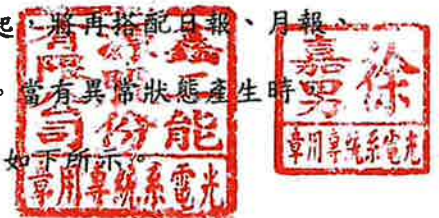 起，將再搭配日報、月報、
。當有異常狀態產生時，
如下所示。
鑫正能
股份
有限公司
光電系統專用章
徐
嘉男
光電系統專用章